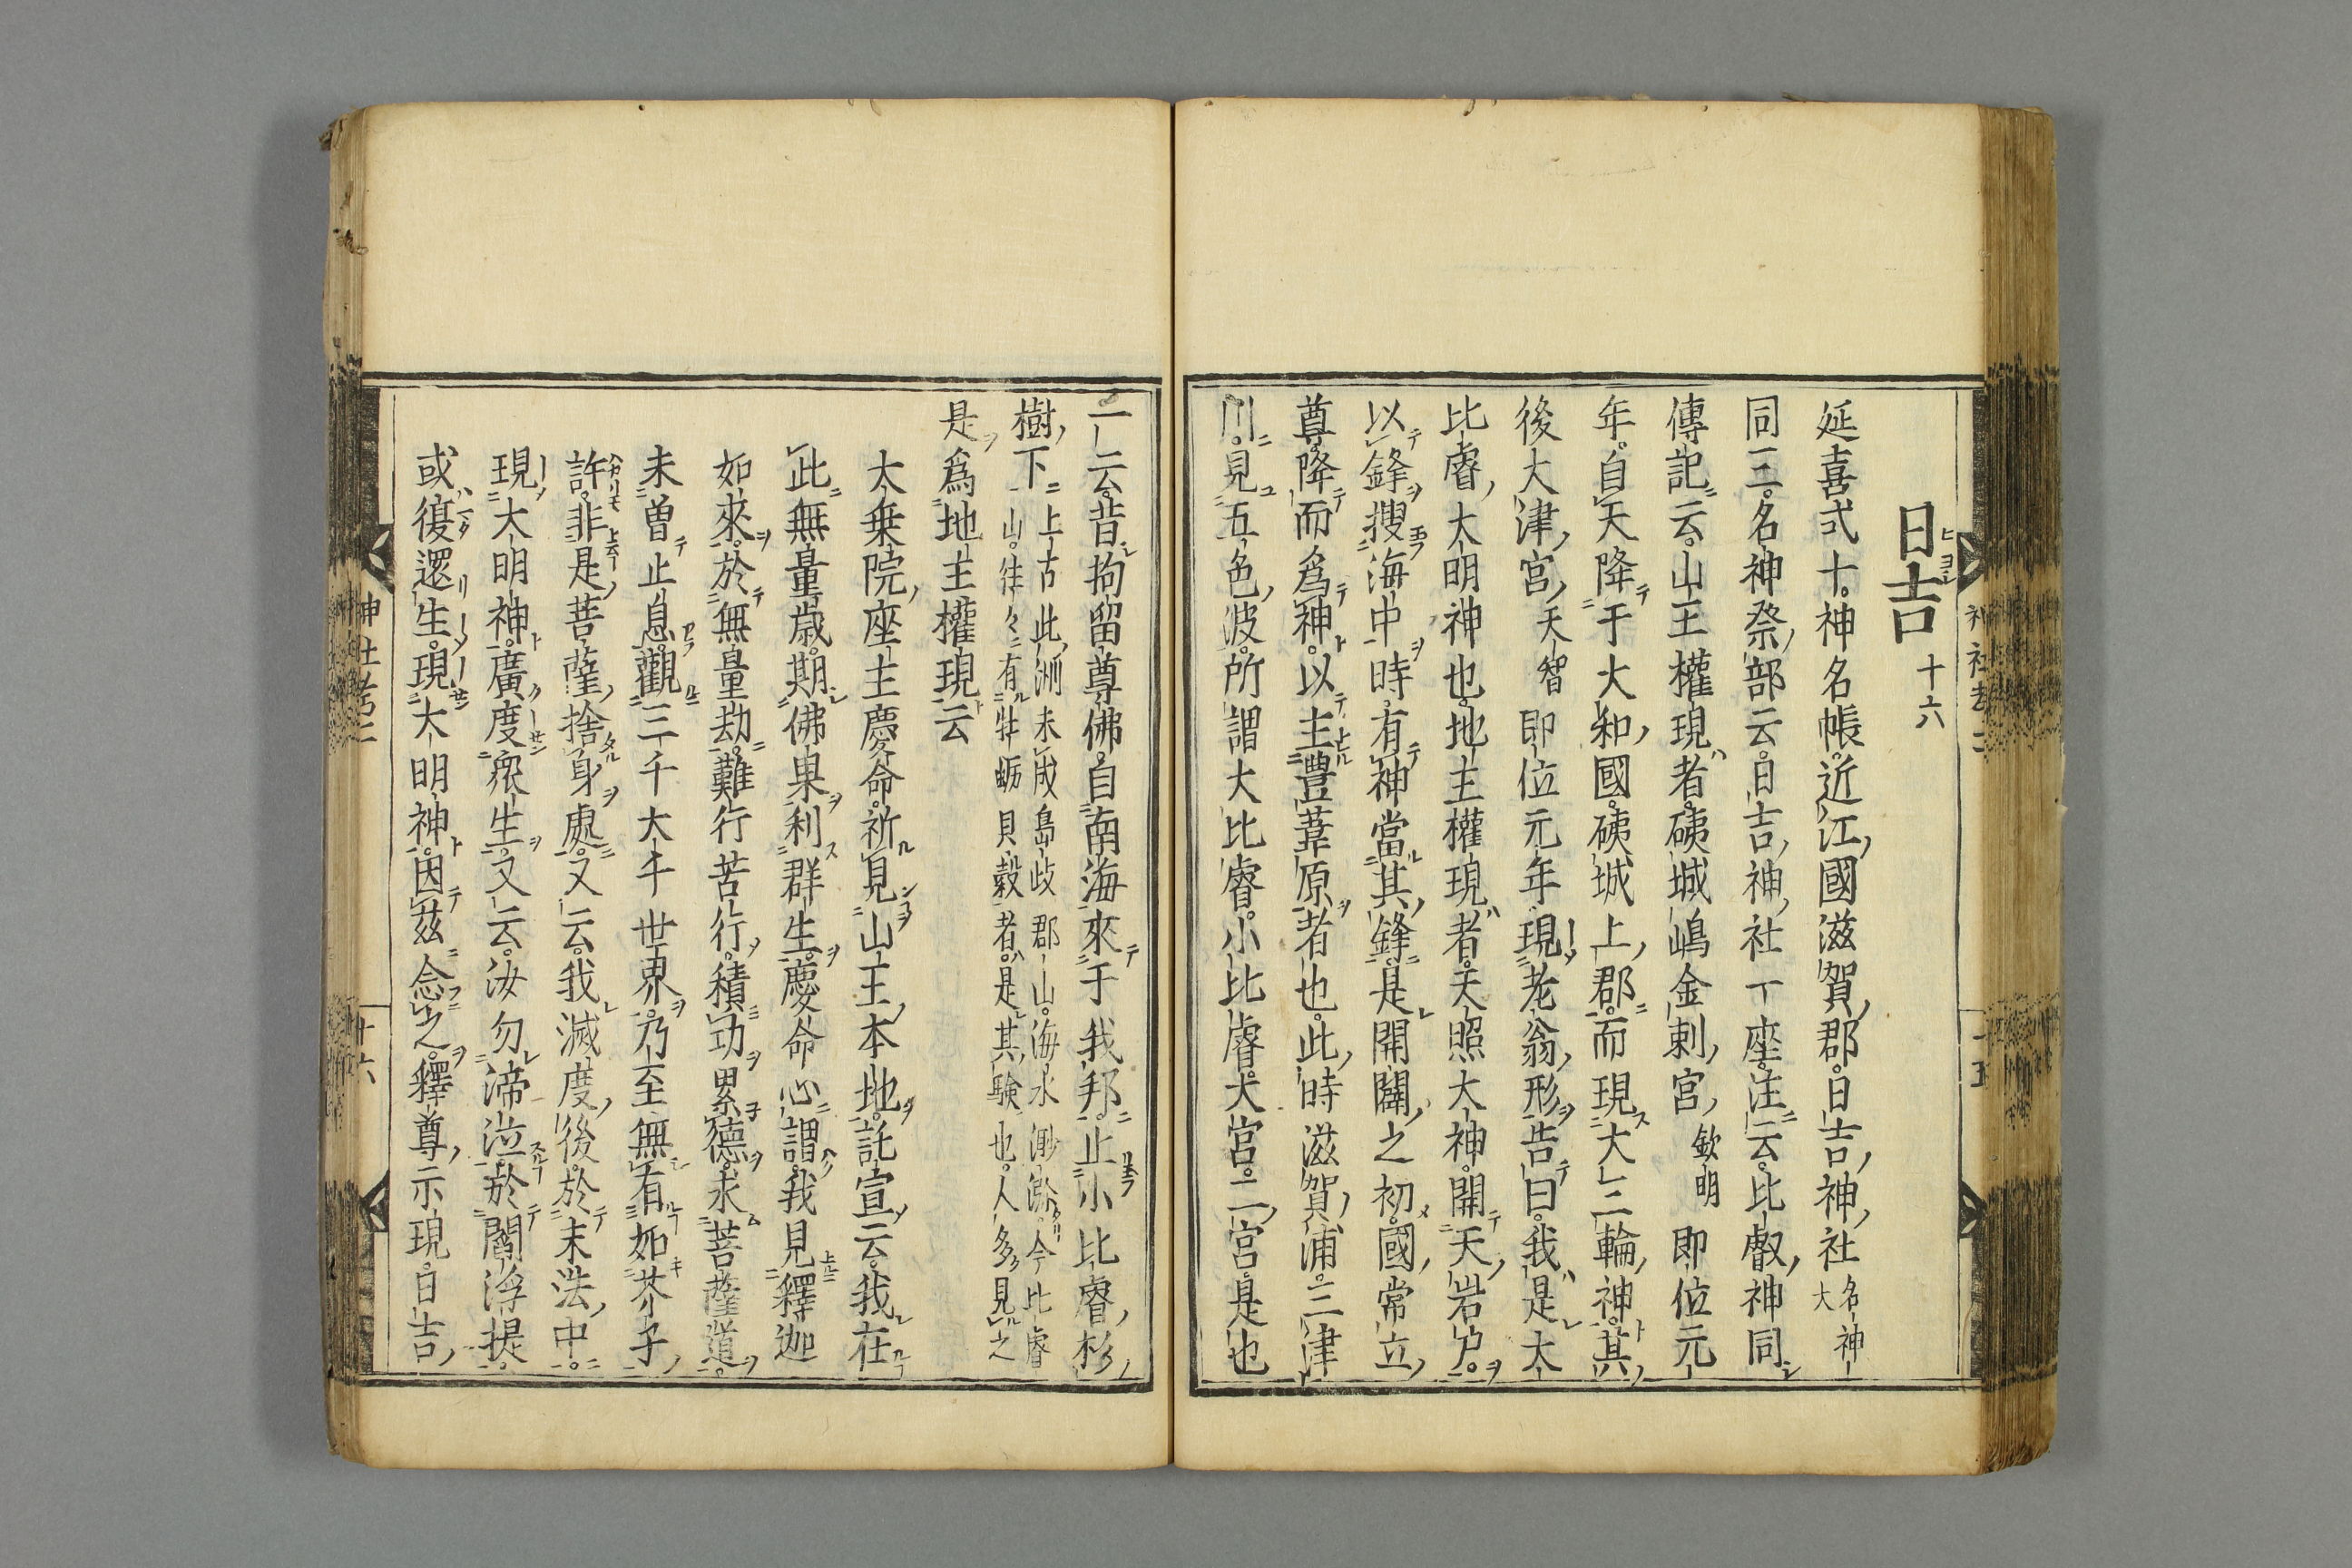 日吉 十六
延喜式十神名帳近江國滋賀郡日吉神社 名神大
同三名神祭部云日吉神社一座注云比叡神同
傳記云山王權現者磯城嶋金刺宮 欽明 即位元
年自天降于大和國磯城上郡而現大三輪神其
後大津宮 天智 即位元年現老翁形告曰我是大
比睿大明神也地主權現者天照大神開天岩户
以鋒搜海中時有神當其鋒是開闢之初國常立
尊降而爲神以主豊葦原者也此時滋賀浦三津
川見五色波所謂大比睿小比睿大宮二宮是也
一云昔拘留尊佛自南海來于我邦止小比睿杉
樹下 上古此洲未成島歧郡山海水渺渺今比睿
山往々有牡蛎貝殻者是其驗也人多見之
是爲地主權現云
大乗院座主慶命祈見山王本地託宣云我在
此無量歳期佛果利群生慶命心謂我見釋迦
如來於無量劫難行苦行積功累德求菩薩道
未曽止息觀三千大千世界乃至無有如芥子
許非是菩薩捨身處又云我滅度後於末法中
現大明神廣度衆生又云汝勿渧泣於閻浮提
或復還生現大明神因茲念之釋尊示現日吉
神社考二
十六